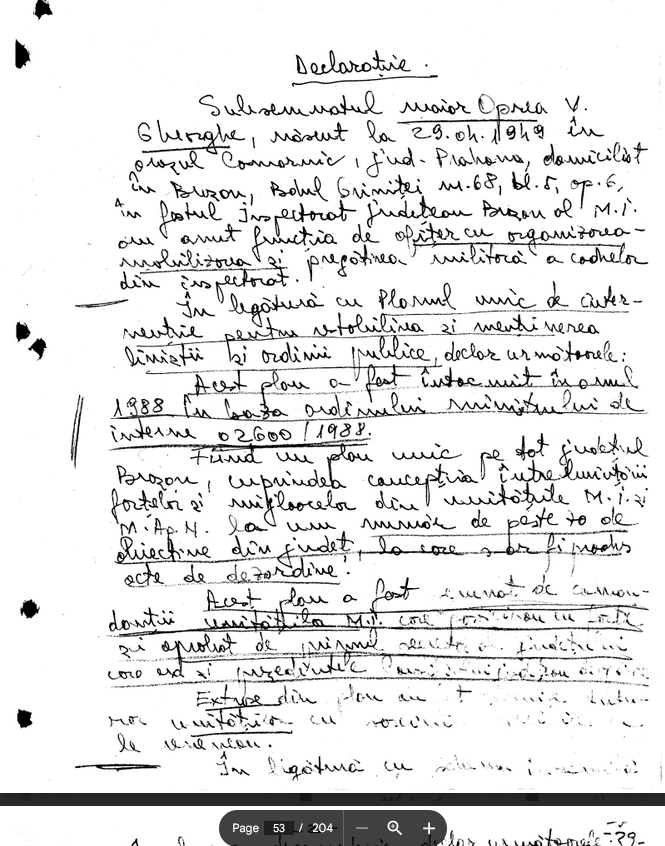 Declarație.
Subsemnatul maior Oprea V.
Gheorghe, născut la 29.04.1949 în
orașul Comarnic, jud. Prahova, domiciliat
în Brașov, Bdul Griviței nr.68, bl.5, ap.6,
în fostul Inspectorat Județean Brașov al M.I.
am avut funcția de ofițer cu organizarea-
mobilizarea și pregătirea militară a cadrelor
din inspectorat.
În legătură cu Planul unic de inter-
venție pentru restabilirea și menținerea
liniștii și ordinii publice, declar următoarele:
Acest plan a fost întocmit în anul
1988 în baza ordinului ministrului de
interne 02600/1988.
Fiind un plan unic pe tot județul
Brașov, cuprindea concepția întrebuințării
forțelor și mijloacelor din unitățile M.I. și
M.Ap.N. la un număr de peste 70 de
obiective din județ, la care s-ar fi produs
acte de dezordine.
Acest plan a fost semnat de coman-
danții unităților M.I. care participau cu forțe
și aprobat de primul secretar al județului
care era și președintele
Extrase din plan au
unităților cu
le reveneau.
În legătură cu schema
Page 53 / 204
declar următoarele: